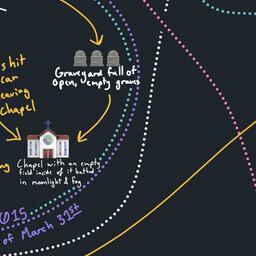 s hit
car
eaving
chapel
Graveyard full of
open, empty graves
ng
Chapel with an empty
field inside of it bathed
in moonlight & fog
015
of March 31st